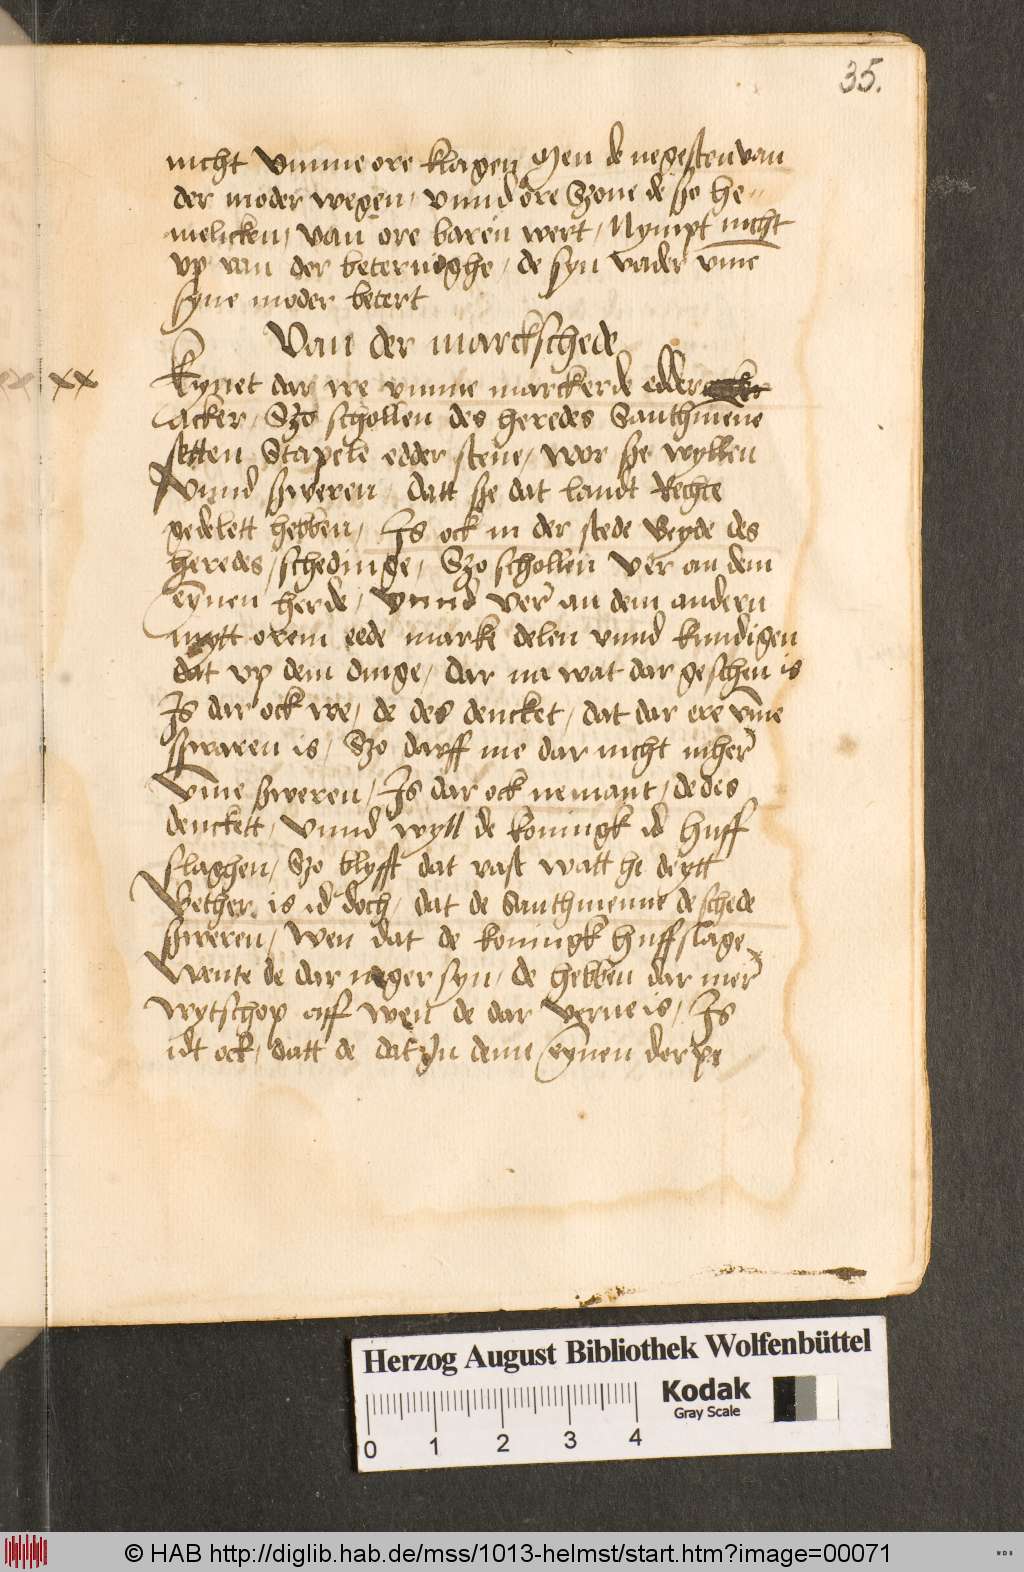 35.
nicht vmme ore klagen Men de negesten van
der moder wegen / vnnd ore Szone de sze he-
melicken / van ore baren wert / Nympt nicht
vp van der beteringhe / de syn vader vme
syne moder betert
Van der marckschede
xx Kynet dar we vmme marckerde edder
acker / Szo schollen des heredes Santhmene
setten Stapele edder stene / wor sze wyllen
Vnnd szweren / datt sze dat landt Rechte
gedelett hebben / Is ock in der stede Beyde des
heredes / schedinge / Szo schollen ver an dem
eynen herde / vnnd ver an dem andern
mytt orem eede marke delen vnnd kundigen
dat vp dem dinge / dar na wat dar geschen is
Is dar ock we / de des dencket / dat dar ere vme
szwaren is / Szo darff me dar nicht mher
vme szweren / Is dar ock nemant / de des
denckett / vnnd wyll de koningk id huff
slaghen / Szo blyfft dat vast watt he deytt
Bether is id doch / dat de Santhmenne de schede
szweren / wen dat de koningk huffslage
Wente de dar neger syn / de hebben dar mer
wytschop aff wen de dar verne is / Is
idt ock / datt de dat Jn dem eynen dorpe
Herzog August Bibliothek Wolfenbüttel
Kodak
Gray Scale
0 1 2 3 4
© HAB http://diglib.hab.de/mss/1013-helmst/start.htm?image=00071